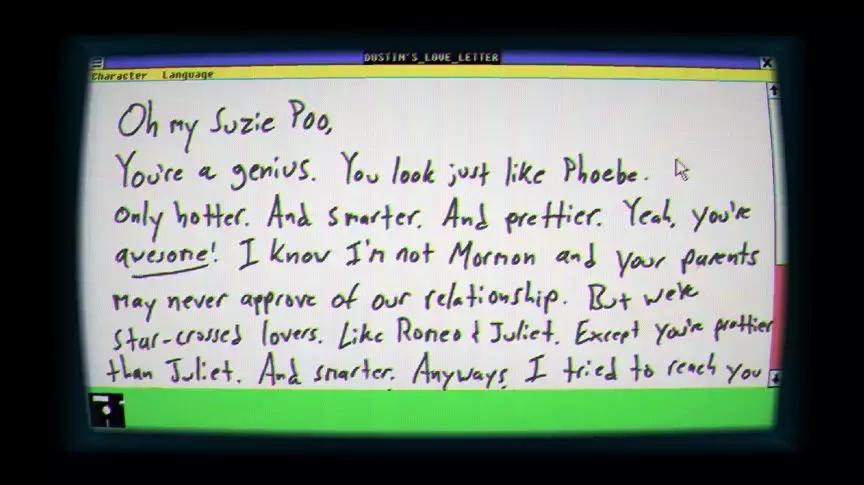 DUSTIN'S_LOVE_LETTER
Character Language
Oh my Suzie Poo,
You're a genius. You look just like Phoebe.
Only hotter. And smarter. And prettier. Yeah, you're
awesome! I know I'm not Mormon and your parents
may never approve of our relationship. But we're
star-crossed lovers. Like Romeo & Juliet. Except you're prettier
than Juliet. And smarter. Anyways, I tried to reach you